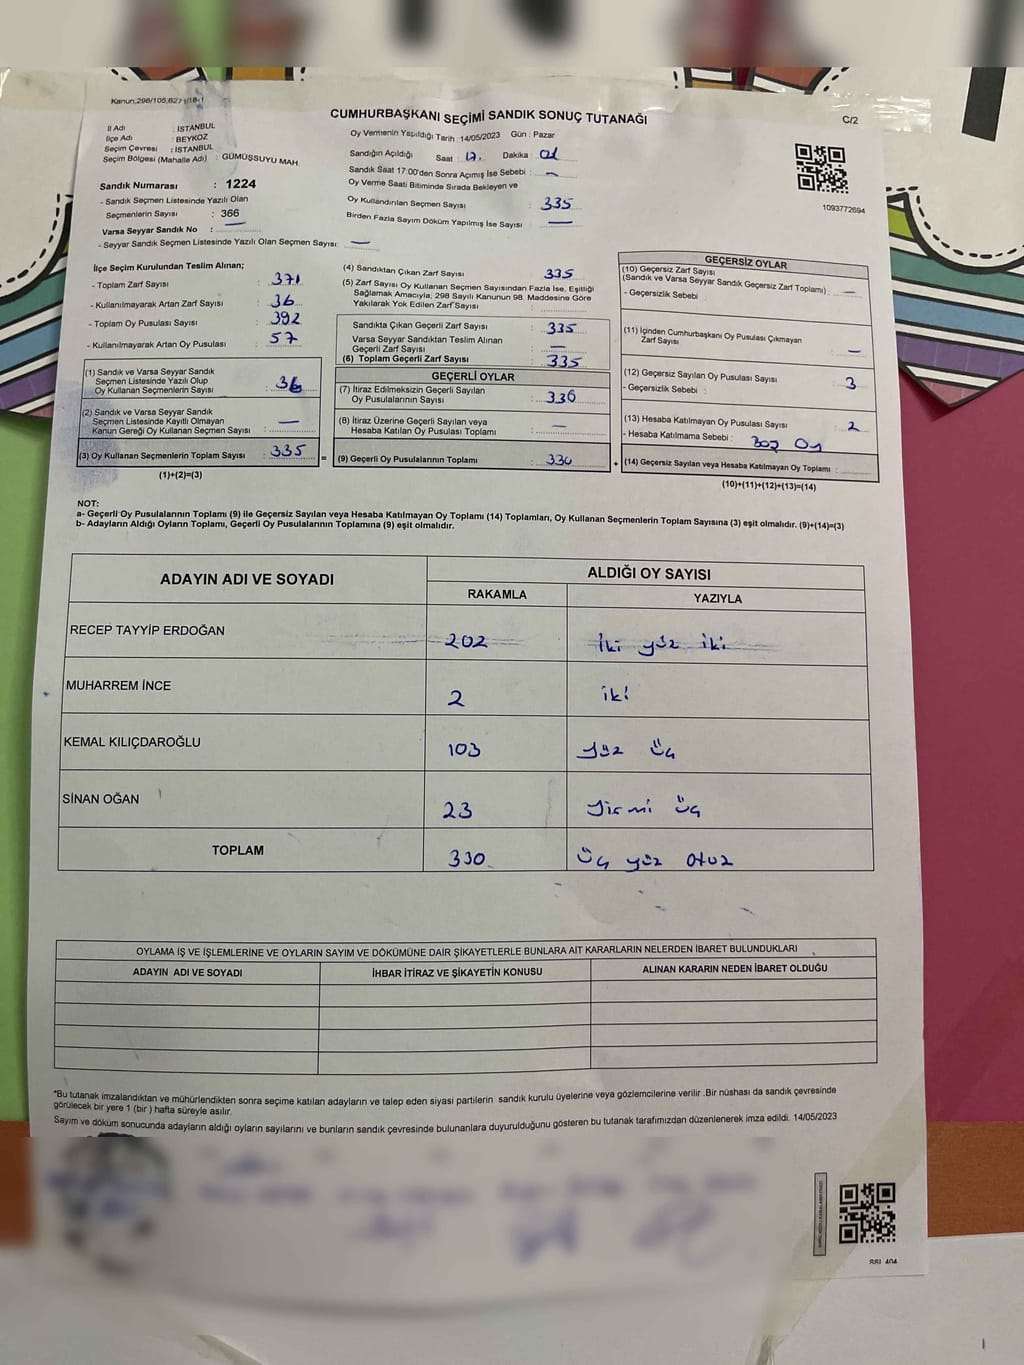 Kanun,298/105,6271/18-1
CUMHURBAŞKANI SEÇİMİ SANDIK SONUÇ TUTANAĞI
C/2
İl Adı : İSTANBUL
İlçe Adı : BEYKOZ
Seçim Çevresi : İSTANBUL
Seçim Bölgesi (Mahalle Adı) : GÜMÜŞSUYU MAH.
Sandık Numarası : 1224
- Sandık Seçmen Listesinde Yazılı Olan
Seçmenlerin Sayısı : 366
Varsa Seyyar Sandık No : —
- Seyyar Sandık Seçmen Listesinde Yazılı Olan Seçmen Sayısı: —
Oy Vermenin Yapıldığı Tarih : 14/05/2023 Gün : Pazar
Sandığın Açıldığı Saat : 17. Dakika : 01
Sandık Saat 17:00'den Sonra Açımış İse Sebebi : —
Oy Verme Saati Bitiminde Sırada Bekleyen ve
Oy Kullandırılan Seçmen Sayısı : 335
Birden Fazla Sayım Döküm Yapılmış İse Sayısı : —
1093772694
İlçe Seçim Kurulundan Teslim Alınan;
- Toplam Zarf Sayısı : 371
- Kullanılmayarak Artan Zarf Sayısı : 36
- Toplam Oy Pusulası Sayısı : 392
- Kullanılmayarak Artan Oy Pusulası : 57
(1) Sandık ve Varsa Seyyar Sandık
Seçmen Listesinde Yazılı Olup
Oy Kullanan Seçmenlerin Sayısı : 36
(2) Sandık ve Varsa Seyyar Sandık
Seçmen Listesinde Kayıtlı Olmayan
Kanun Gereği Oy Kullanan Seçmen Sayısı : —
(3) Oy Kullanan Seçmenlerin Toplam Sayısı : 335 =
(1)+(2)=(3)
(4) Sandıktan Çıkan Zarf Sayısı : 335
(5) Zarf Sayısı Oy Kullanan Seçmen Sayısından Fazla İse, Eşitliği
Sağlamak Amacıyla; 298 Sayılı Kanunun 98. Maddesine Göre
Yakılarak Yok Edilen Zarf Sayısı :
Sandıkta Çıkan Geçerli Zarf Sayısı : 335
Varsa Seyyar Sandıktan Teslim Alınan
Geçerli Zarf Sayısı : —
(6) Toplam Geçerli Zarf Sayısı : 335
GEÇERLİ OYLAR
(7) İtiraz Edilmeksizin Geçerli Sayılan
Oy Pusulalarının Sayısı : 330
(8) İtiraz Üzerine Geçerli Sayılan veya
Hesaba Katılan Oy Pusulası Toplamı : —
(9) Geçerli Oy Pusulalarının Toplamı : 330 +
GEÇERSİZ OYLAR
(10) Geçersiz Zarf Sayısı
(Sandık ve Varsa Seyyar Sandık Geçersiz Zarf Toplamı) : —
- Geçersizlik Sebebi :
(11) İçinden Cumhurbaşkanı Oy Pusulası Çıkmayan
Zarf Sayısı : —
(12) Geçersiz Sayılan Oy Pusulası Sayısı : 3
- Geçersizlik Sebebi :
(13) Hesaba Katılmayan Oy Pusulası Sayısı : 2
- Hesaba Katılmama Sebebi : Boş Oy
(14) Geçersiz Sayılan veya Hesaba Katılmayan Oy Toplamı :
(10)+(11)+(12)+(13)=(14)
NOT:
a- Geçerli Oy Pusulalarının Toplamı (9) ile Geçersiz Sayılan veya Hesaba Katılmayan Oy Toplamı (14) Toplamları, Oy Kullanan Seçmenlerin Toplam Sayısına (3) eşit olmalıdır. (9)+(14)=(3)
b- Adayların Aldığı Oyların Toplamı, Geçerli Oy Pusulalarının Toplamına (9) eşit olmalıdır.
ADAYIN ADI VE SOYADI
ALDIĞI OY SAYISI
RAKAMLA YAZIYLA
RECEP TAYYİP ERDOĞAN 202 iki yüz iki
MUHARREM İNCE 2 iki
KEMAL KILIÇDAROĞLU 103 yüz üç
SİNAN OĞAN 23 yirmi üç
TOPLAM 330 üç yüz otuz
OYLAMA İŞ VE İŞLEMLERİNE VE OYLARIN SAYIM VE DÖKÜMÜNE DAİR ŞİKAYETLERLE BUNLARA AİT KARARLARIN NELERDEN İBARET BULUNDUKLARI
ADAYIN ADI VE SOYADI İHBAR İTİRAZ VE ŞİKAYETİN KONUSU ALINAN KARARIN NEDEN İBARET OLDUĞU
*Bu tutanak imzalandıktan ve mühürlendikten sonra seçime katılan adayların ve talep eden siyasi partilerin sandık kurulu üyelerine veya gözlemcilerine verilir .Bir nüshası da sandık çevresinde
görülecek bir yere 1 (bir ) hafta süreyle asılır.
Sayım ve döküm sonucunda adayların aldığı oyların sayılarını ve bunların sandık çevresinde bulunanlara duyurulduğunu gösteren bu tutanak tarafımızdan düzenlenerek imza edildi. 14/05/2023